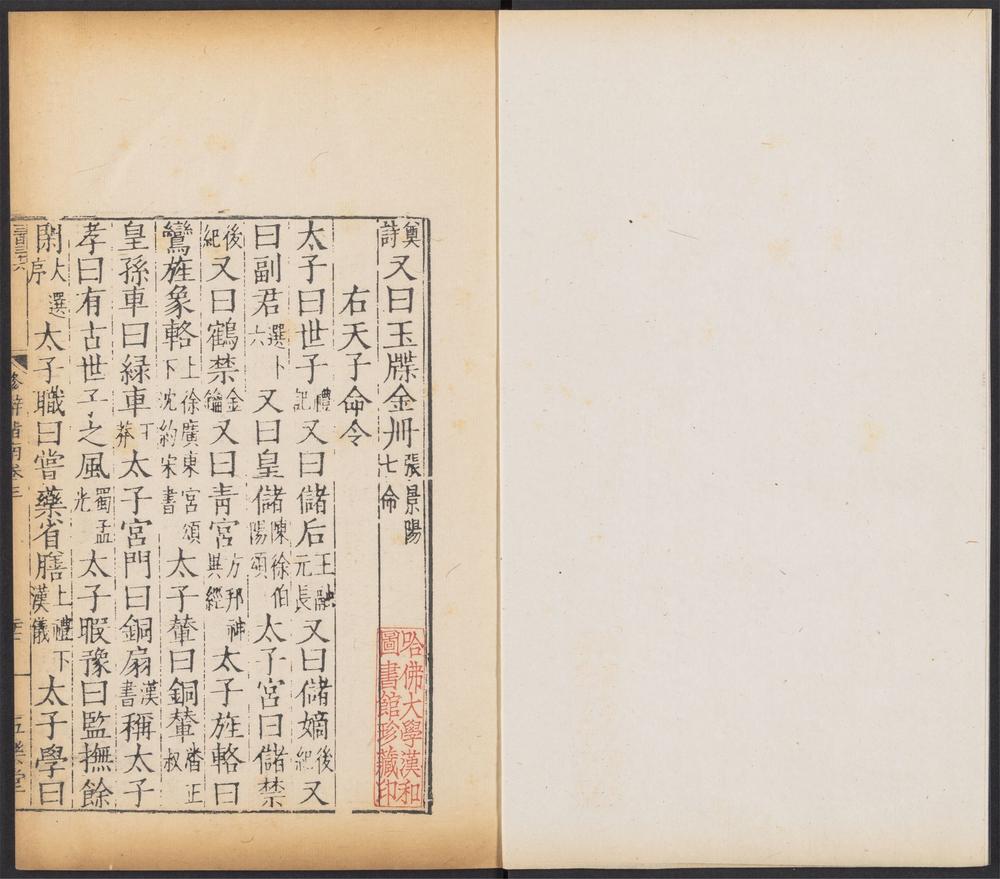 奠詩又曰玉牒金冊張景陽七命
右天子命令
太子曰世子禮記又曰儲后王融元長又曰儲嫡後紀又
曰副君選卜六又曰皇儲陳徐伯陽頌太子宮曰儲禁
後紀又曰鶴禁金鑰又曰青宮方邦神異經太子旌輅曰
鸞旌象輅上徐廣東宮頌下沈約宋書太子輦曰銅輦潘正叔
皇孫車曰緑車下莽太子宮門曰銅扇漢書稱太子
孝曰有古世子之風蜀孟光太子暇豫曰監撫餘
閑大選序太子職曰嘗藥省膳上禮下漢儀太子學曰
哈佛大學漢和
圖書館珍藏印